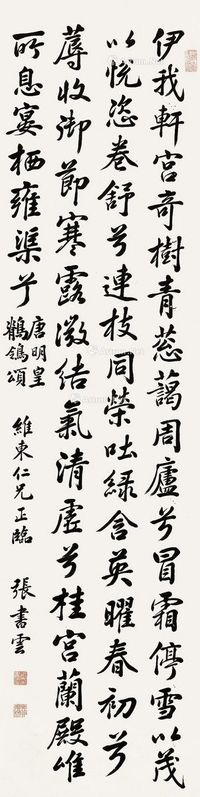 伊我軒宮奇樹青蔥藹周廬兮冒霜停雪以茂
以悅恣卷舒兮連枝同榮吐綠含英曜春初兮
蓐收御節寒露微結氣清虛兮桂宮蘭殿唯
所息宴栖雍渠兮
唐明皇
鶺鴒頌
維東仁兄正臨
張書雲